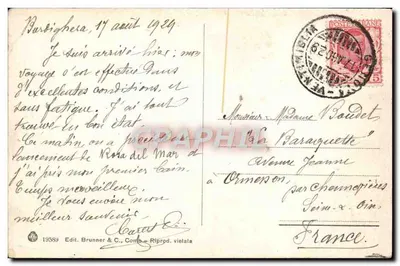 Bordighera, 17 août 1924
Je suis arrivé hier; mon
voyage s'est effectué dans
d'excellentes conditions, et
sans fatigue. J'ai tout
trouvé en bon état.
Ce matin, on a procédé au
lancement de Rosa del Mar et
j'ai pris mon premier bain.
Temps merveilleux.
Je vous envoie mon
meilleur souvenir.
Monsieur Madame Boudet
"La Baraquette"
Avenue Jeanne
à Ormesson,
par Chennevières
Seine & Oise
France.
VENTIMIGLIA
CARTHAPHILIE
19589 Edit. Brunner & C., Como - Riprod. vietata